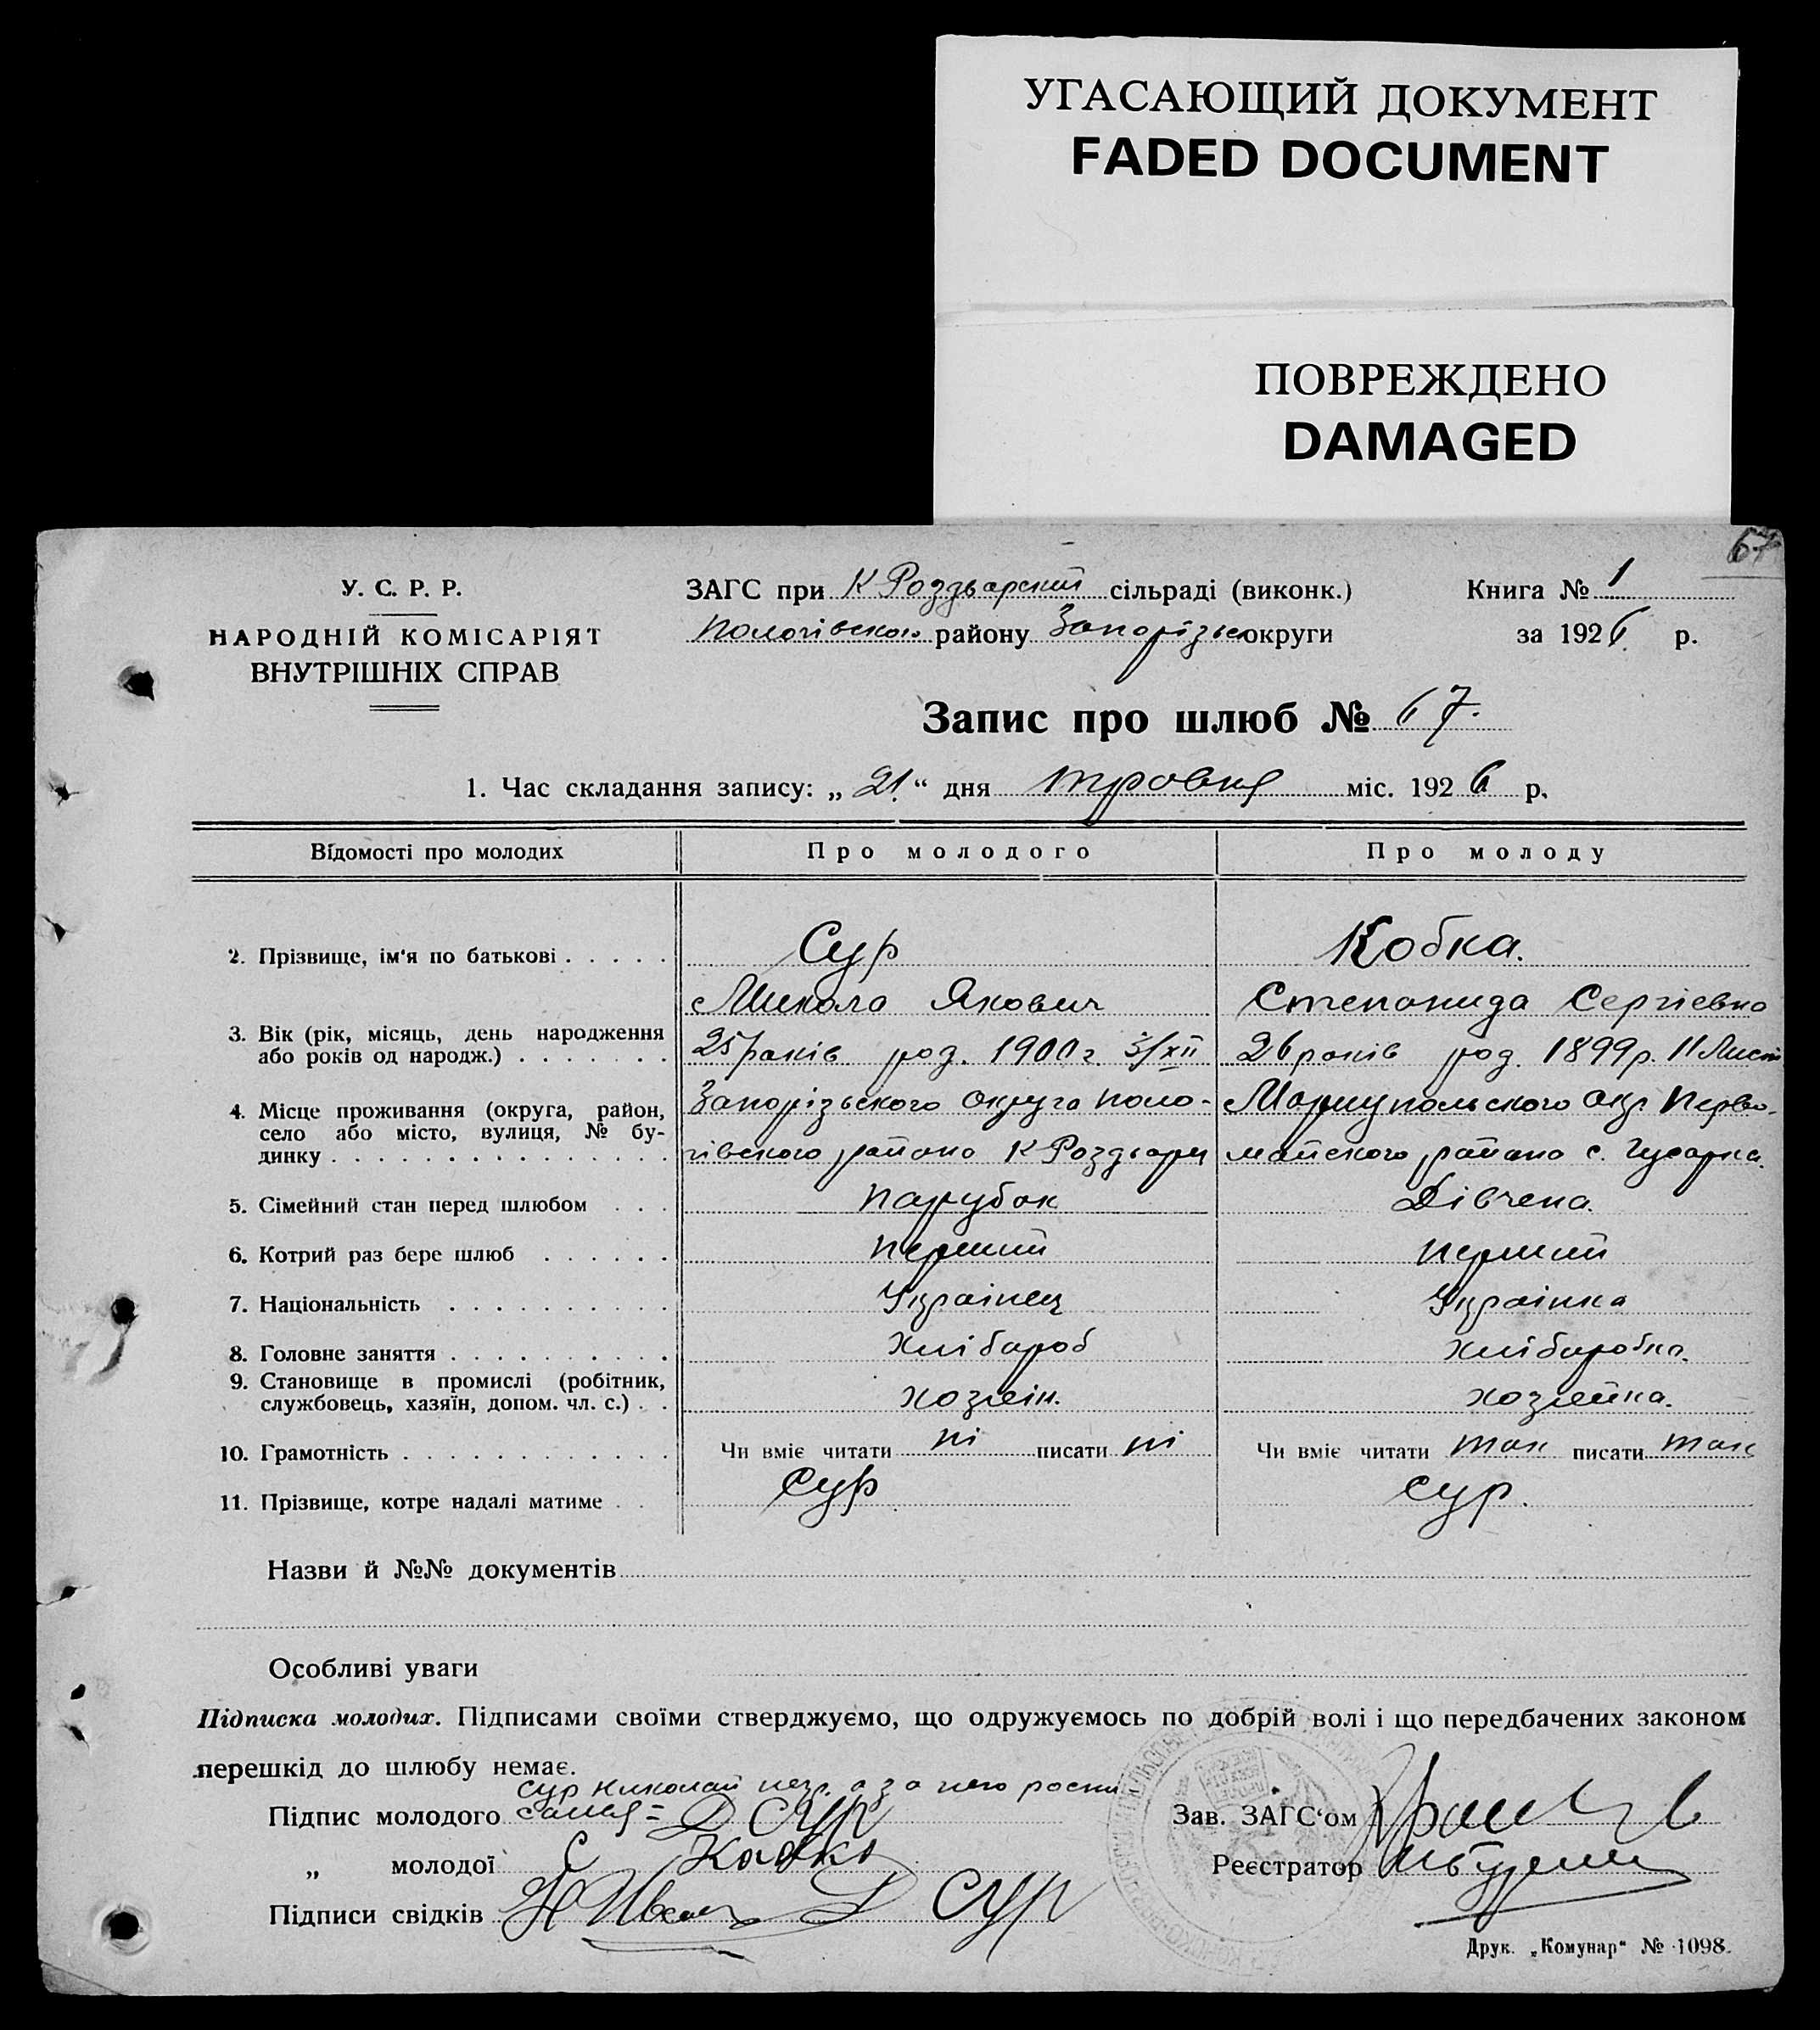 УГАСАЮЩИЙ ДОКУМЕНТ
FADED DOCUMENT
ПОВРЕЖДЕНО
DAMAGED
67
У. С. Р. Р.
НАРОДНІЙ КОМІСАРІЯТ
ВНУТРІШНІХ СПРАВ
ЗАГС при К Роздварский сільраді (виконк.)
Пологівского району Запорізьс округи
Книга № 1
за 1926 р.
Запис про шлюб № 67.
1. Час складання запису: „ 21 “ дня травня міс. 1926 р.
Відомості про молодих Про молодого Про молоду
2. Прізвище, ім'я по батькові . . . . . Сур Кобка.
Микола Якович Степанида Сергіевна
3. Вік (рік, місяць, день народження
або років од народж.) . . . . . . . 25 раків род. 1900 г. 5/XII 26 раків род. 1899 р. 11 Лист
4. Місце проживання (округа, район, Запорізьского округа Поло- Маріупольского окр Перво-
село або місто, вулиця, № бу-
динку . . . . . . . . . . . . . . . гівского району К Роздвари майского району с. Гусарка.
5. Сімейний стан перед шлюбом . . . парубок Дівчена.
6. Котрий раз бере шлюб . . . . . . перший перший
7. Національність . . . . . . . . . . Украінец Украінка
8. Головне заняття . . . . . . . . . . Хлібароб хлібаробка.
9. Становище в промислі (робітник,
службовець, хазяїн, допом. чл. с.) . . хозяін. хозяйка.
10. Грамотність . . . . . . . . . . . . Чи вміє читати ні писати ні Чи вміє читати так писати так
11. Прізвище, котре надалі матиме . . Сур Сур.
Назви й №№ документів
Особливі уваги
Підписка молодих. Підписами своїми стверджуємо, що одружуємось по добрій волі і що передбачених законом
перешкід до шлюбу немає.
Сур Николай негр. а за него роспи
Підпис молодого Д Сур
„ молодої С Кобка
Підписи свідків Д Сур
Зав. ЗАГС'ом
Реєстратор
Друк. „Комунар“ № 1098.